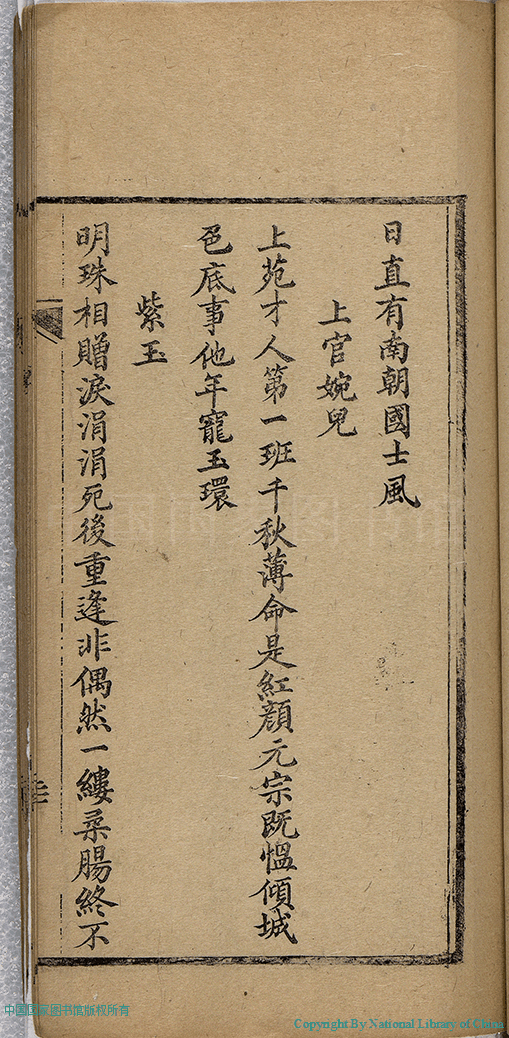 日直有南朝國士風
上官婉兒
上苑才人第一班千秋薄命是紅顔元宗既愠傾城
色底事他年寵玉環
紫玉
明珠相贈淚涓涓死後重逢非偶然一縷柔腸終不
中国国家图书馆版权所有
Copyright By National Library of China